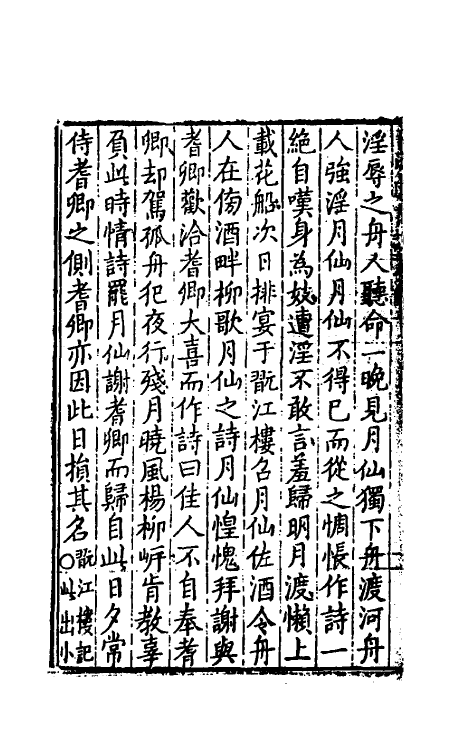 淫辱之舟人聽命一晚見月仙獨下舟渡河舟
人強淫月仙月仙不得已而從之惆悵作詩一
絕自嘆身為妓遭淫不敢言羞歸明月渡懶上
載花船次日排宴于翫江樓召月仙佐酒令舟
人在傍酒畔柳歌月仙之詩月仙惶愧拜謝與
耆卿歡洽耆卿大喜而作詩曰佳人不自奉耆
卿却駕孤舟犯夜行殘月曉風楊柳岍肯教辜
負此時情詩罷月仙謝耆卿而歸自此日夕常
侍耆卿之側耆卿亦因此日損其名○翫江樓記
此出小